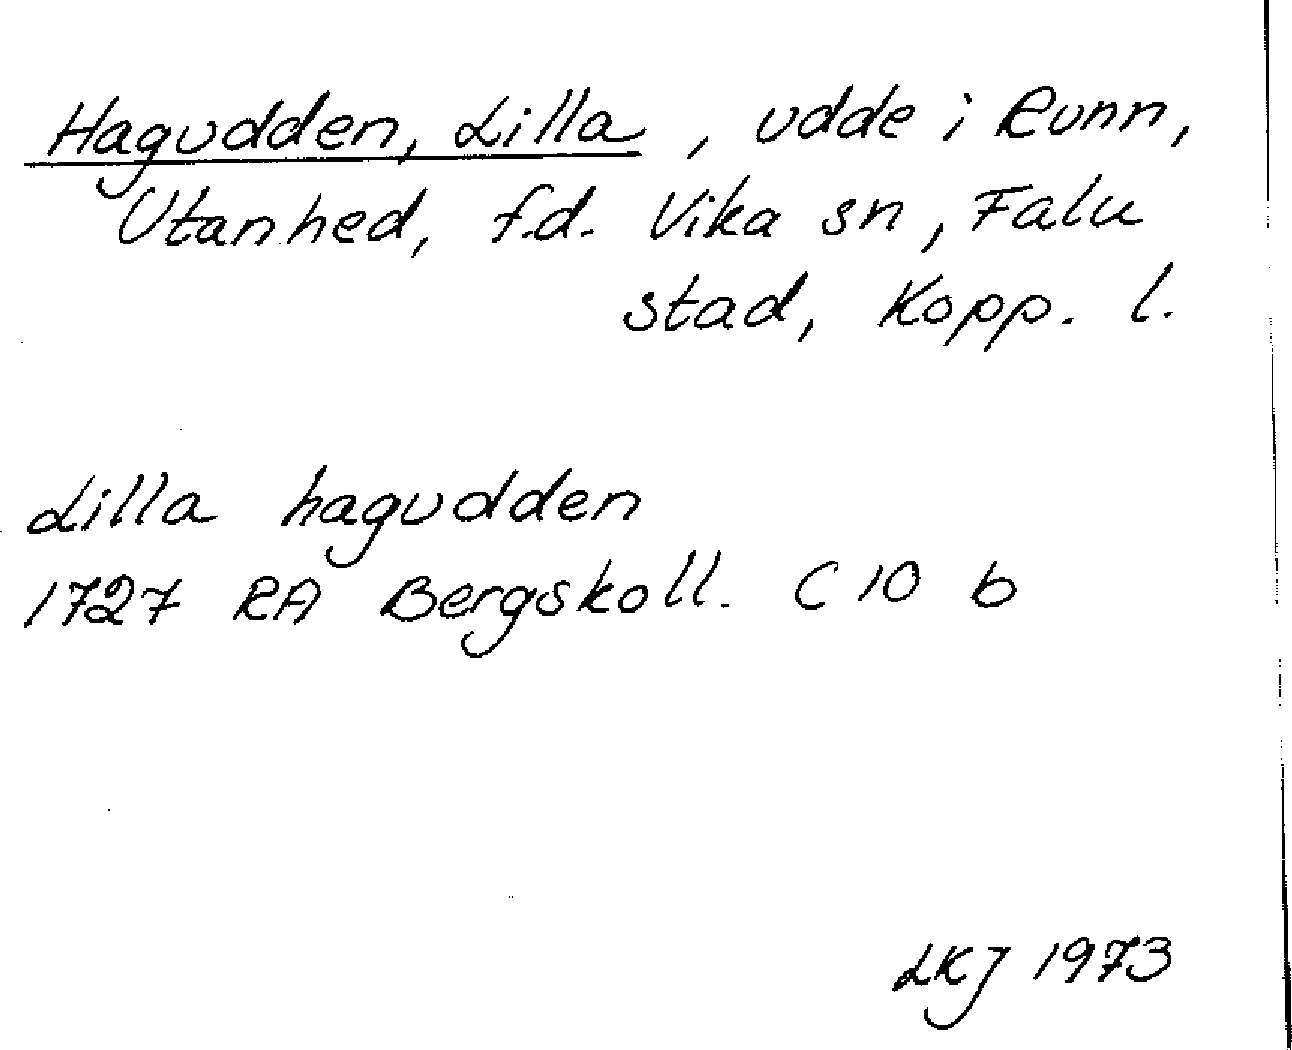 Hagudden, Lilla, udde i Runn,
Utanhed, f.d. Vika sn, Falu
stad, Kopp. l.
Lilla hagudden
1727 RA Bergskoll. C 10 b
LKJ 1973